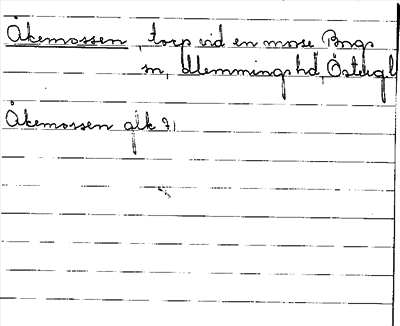 Åkemossen, torp vid en mosse Rogs
sn, Memmings hd, Österg
Åkemossen glk 71